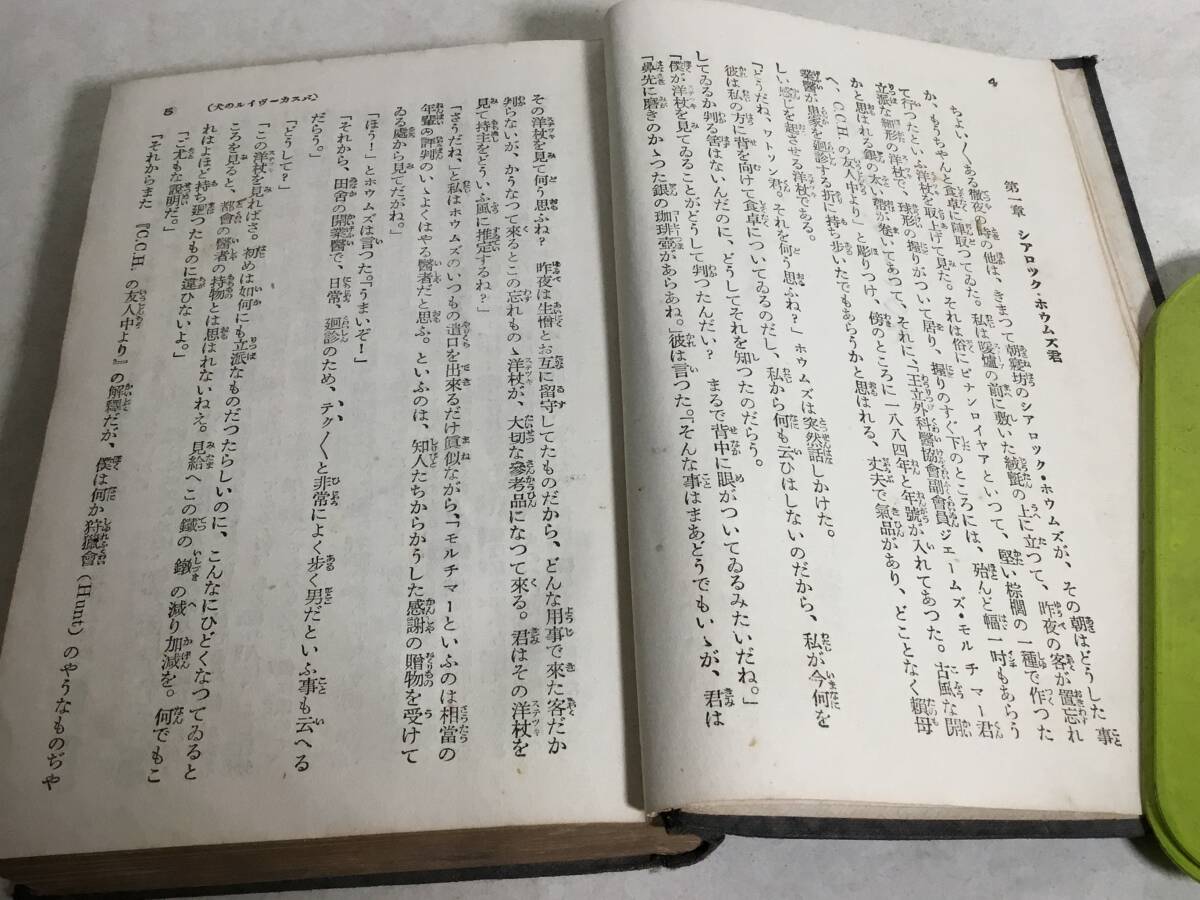 4
第一章 シアロック・ホウムズ君
ちよい〳〵ある徹夜の時の他は、きまつて朝寢坊のシアロック・ホウムズが、その朝はどうした事
か、もうちやんと食卓に陣取つてゐた。私は煖爐の前に敷いた絨氈の上に立つて、昨夜の客が置忘れ
て行つたといふ洋杖を取上げて見た。それは俗にピナンロイヤアといつて、堅い棕櫚の一種で作つた
立派な細形の洋杖で、球形の握りがついて居り、握りのすぐ下のところには、殆んど幅一吋もあらう
かと思はれる銀の太い帶が卷いてあつて、それに「王立外科醫協會副會員ジェームズ・モルチマー君
へ、C.C.H. の友人中より」と彫りつけ、傍のところに一八八四年と年號が入れてあつた。古風な開
業醫が患家を廻診する折に持ち歩いたでもあらうかと思はれる、丈夫で氣品があり、どことなく頼母
しい感じを起させる洋杖である。
「どうだね、ワトソン君。それを何う思ふね?」ホウムズは突然話しかけた。
彼は私の方に背を向けて食卓についてゐるのだし、私から何も云ひはしないのだから、私が今何を
してゐるか判る筈はないんだのに、どうしてそれを知つたのだらう。
「僕が洋杖を見てゐることがどうして判つたんだい? まるで背中に眼がついてゐるみたいだね。」
「鼻先に磨きのかゝつた銀の珈琲壺があらあね。」彼は言つた。「そんな事はまあどうでもいゝが、君は
その洋杖を見て何う思ふね? 昨夜は生憎とお互に留守してたものだから、どんな用事で來た客だか
判らないが、かうなつて來るとこの忘れものゝ洋杖が、大切な參考品になつて來る。君はその洋杖を
見て持主をどうい、ふ風に推定するね?」
「さうだね、」と私はホウムズのいつもの遣口を出來るだけ眞似ながら、「モルチマーといふのは相當の
年輩の評判のいゝよくはやる醫者だと思ふ。といふのは、知人たちからかうした感謝の贈物を受けて
ゐる處から見てだがね。」
「ほう!」とホウムズは言つた。「うまいぞ!」
「それから、田舍の開業醫で、日常、廻診のため、テク〳〵と非常によく歩く男だといふ事も云へる
だらう。」
「どうして?」
「この洋杖を見ればさ。初めは如何にも立派なものだつたらしいのに、こんなにひどくなつてゐると
ころを見ると、都會の醫者の持物とは思はれないねえ。見給へこの鐵の鐓の減り加減を。何でもこ
れはよほど持ち廻つたものに違ひないよ。」
「ご尤もな說明だ。」
「それからまた『C.C.H. の友人中より』の解釋だが、僕は何か狩獵會 (Hunt) のやうなものぢや
(バスカーヴィルの犬)
5